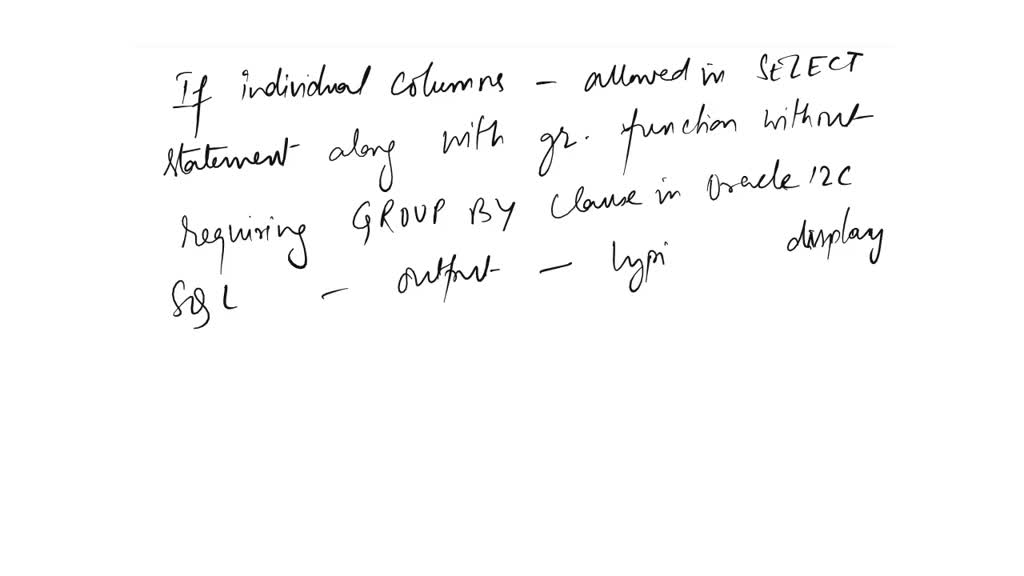 If individual columns - allowed in SELECT
statement along with gr. function without
requiring GROUP BY clause in Oracle 12C
SQL - output - display